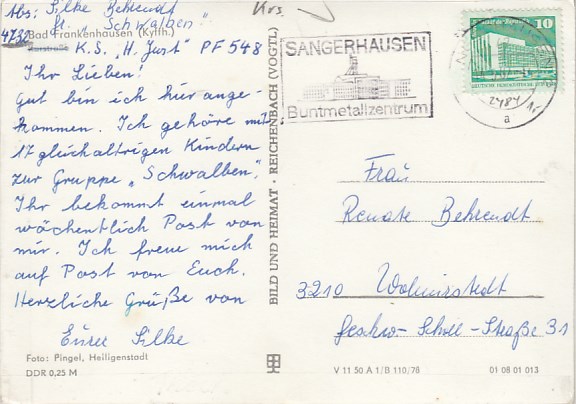 Abs: Silke Behrendt
"Schwalben"
4732 Bad Frankenhausen (Kyffh.)
K.S. „H. Just" PF 548
Ihr Lieben!
Gut bin ich hier ange-
kommen. Ich gehöre mit
17 gleichaltrigen Kindern
zur Gruppe „Schwalben".
Ihr bekommt einmal
wöchentlich Post von
mir. Ich freue mich
auf Post von Euch.
Herzliche Grüße von
Eurer Silke
Foto: Pingel, Heiligenstadt
DDR 0,25 M
BILD UND HEIMAT · REICHENBACH (VOGTL)
Krs.
SANGERHAUSEN
Buntmetallzentrum
10
DEUTSCHE DEMOKRATISCHE REPUBLIK
a
Frau
Renate Behrendt
3210 Wolmirstedt
Geschw.-Scholl-Straße 31
V 11 50 A 1/B 110/78
01 08 01 013